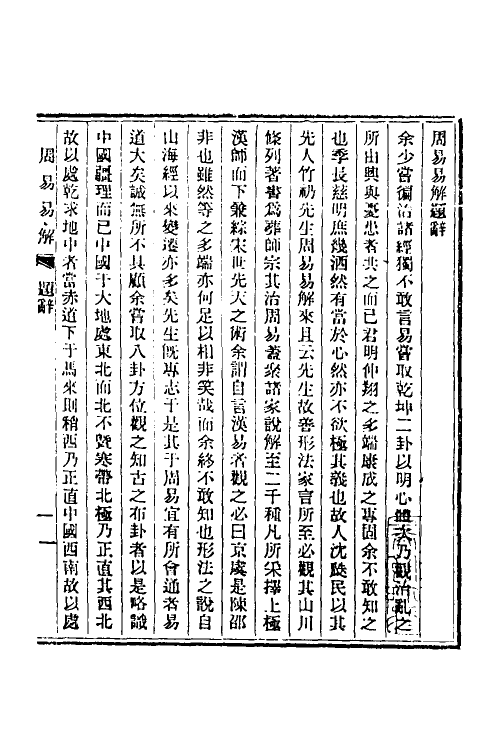 周易易解題辭
余少嘗徧治諸經獨不敢言易嘗取乾坤二卦以明心體次乃觀治亂之
所由興與憂患者共之而已君明仲翔之多端康成之專固余不敢知之
也季長慈明庶幾洒然有當於心然亦不欲極其義也故人沈瓞民以其
先人竹礽先生周易易解來且云先生故善形法家言所至必觀其山川
條列著書爲葬師宗其治周易蓋衆諸家說解至二千種凡所采擇上極
漢師而下兼綜宋世先天之術余謂自言漢易者觀之必曰京虞是陳邵
非也雖然等之多端亦何足以相非笑哉而余終不敢知也形法之說自
山海經以來變遷亦多矣先生旣專志于是其于周易宜有所會通者易
道大矣誠無所不具顧余嘗取八卦方位觀之知古之布卦者以是略識
中國疆理而已中國于大地處東北而北不曁寒帶北極乃正直其西北
故以處乾求地中者當赤道下于馬來則稍西乃正直中國西南故以處
周易易解 題辭 一